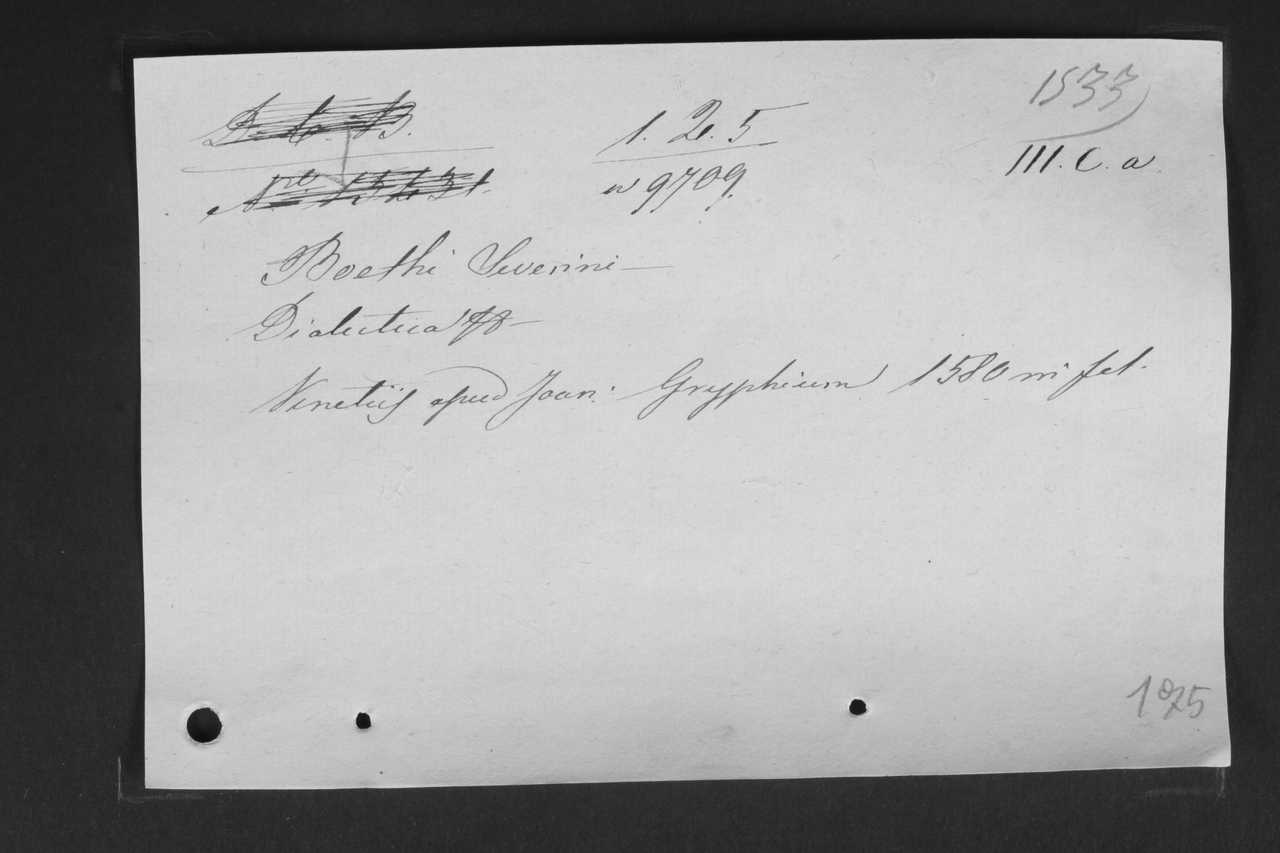 1533
D. C. B.
1. 2. 5
III. C. a.
№ 9709.
Boethi Severini —
Dialectica
Venetiis apud Joan: Gryphium 1580 in fol.